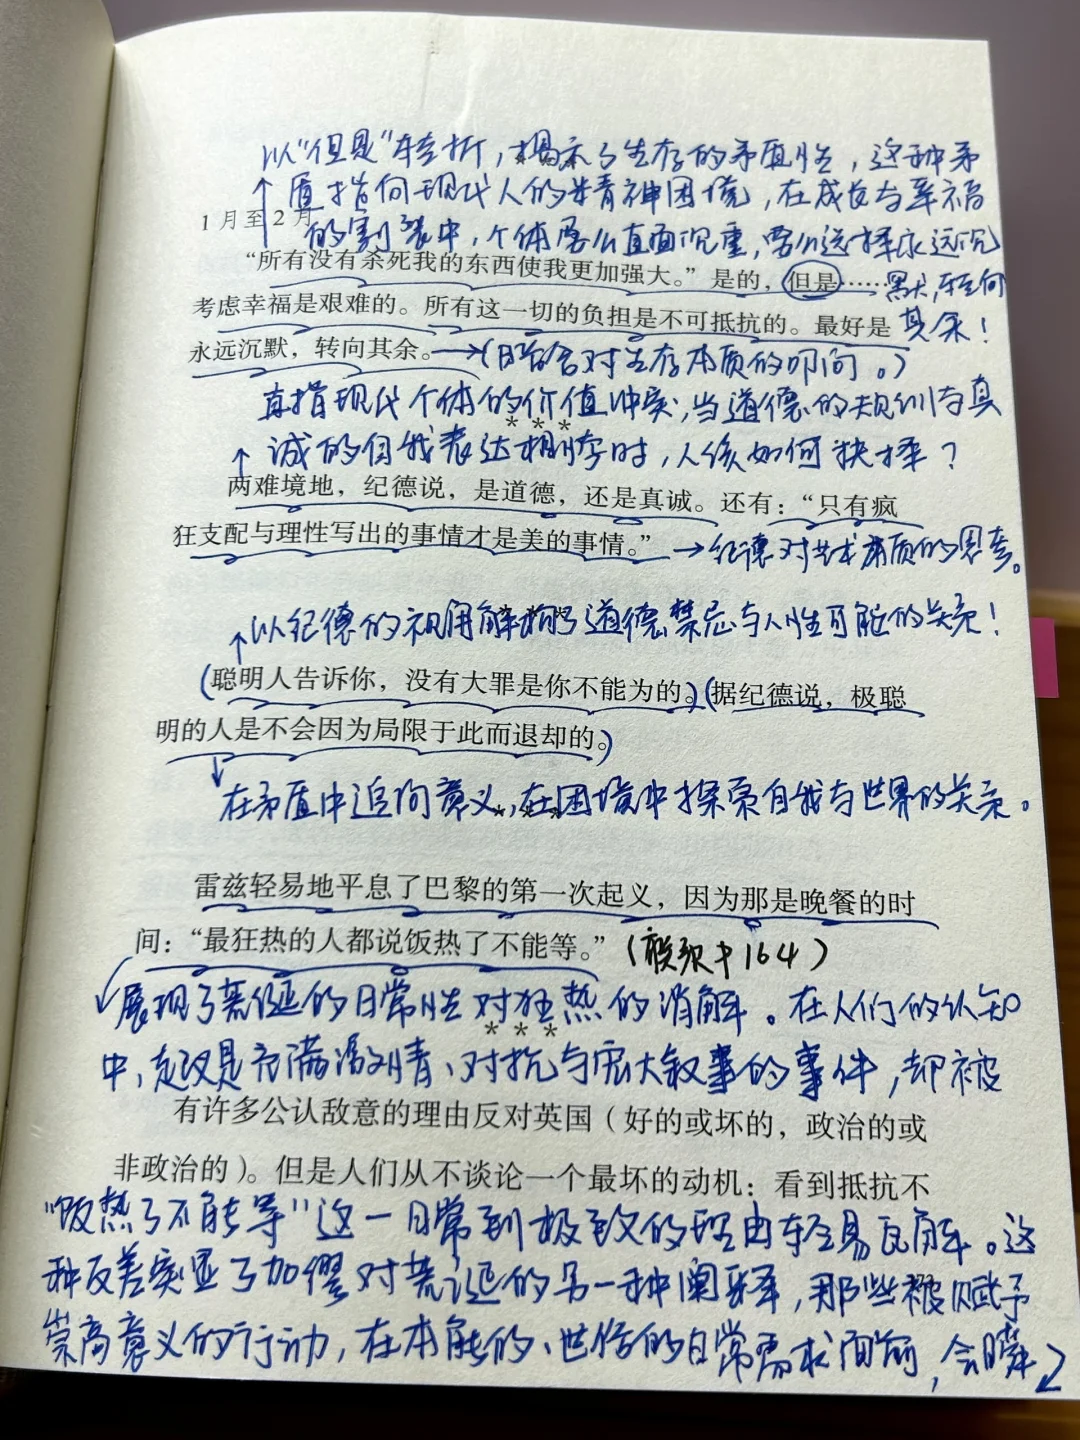 以“但是”转折，揭示了生存的矛盾性，这种矛
盾指向现代人的精神困境，在成长与幸福
1月至2月
的割裂中，个体要么直面沉重，要么选择永远沉
“所有没有杀死我的东西使我更加强大。”是的，但是……
默，转向
考虑幸福是艰难的。所有这一切的负担是不可抵抗的。最好是
其余！
永远沉默，转向其余。→(暗含对生存本质的叩问。)
直指现代个体的价值冲突，当道德的规训与真
* * *
诚的自我表达相悖时，人该如何抉择？
两难境地，纪德说，是道德，还是真诚。还有：“只有疯
狂支配与理性写出的事情才是美的事情。”→纪德对艺术本质的思考。
以纪德的视角解构了道德禁忌与人性可能的关系！
(聪明人告诉你，没有大罪是你不能为的。)(据纪德说，极聪
明的人是不会因为局限于此而退却的。)
在矛盾中追问意义，在困境中探索自我与世界的关系。
雷兹轻易地平息了巴黎的第一次起义，因为那是晚餐的时
间：“最狂热的人都说饭热了不能等。”(164)
展现了荒诞的日常性对狂热的消解。在人们的认知
* * *
中，起义是充满激情、对抗与宏大叙事的事件，却被
有许多公认敌意的理由反对英国（好的或坏的，政治的或
非政治的）。但是人们从不谈论一个最坏的动机：看到抵抗不
“饭热了不能等”这一日常到极致的理由轻易瓦解。这
种反差突显了加缪对荒诞的另一种阐释，那些被赋予
崇高意义的行动，在本能的、世俗的日常需求面前，会瞬